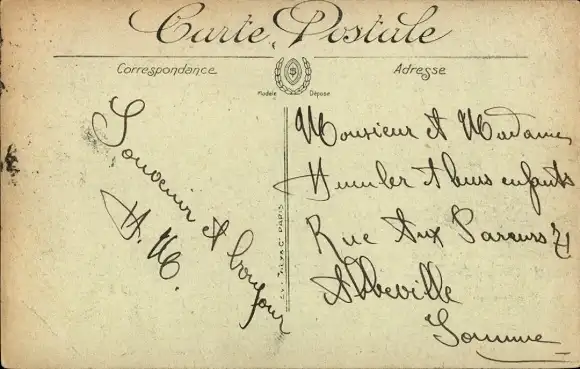 Carte Postale
Correspondance
Adresse
Modèle Déposé
Souvenir et bonjour
H. M.
Monsieur et Madame
et leurs enfants
Rue Aux Pareurs
Abbeville
Somme
PARIS